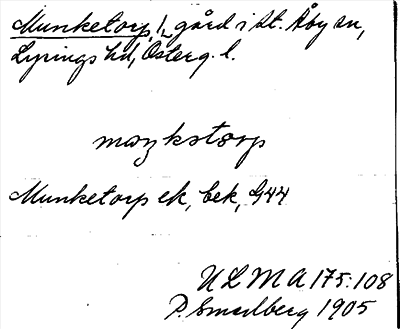 Munketorp, 1, gård i St. Åby sn,
Lysings hd, Österg. l.
maŋkətorp
Munketorp ek, bek, G44
ULMA 175:108
P. Smedberg 1905